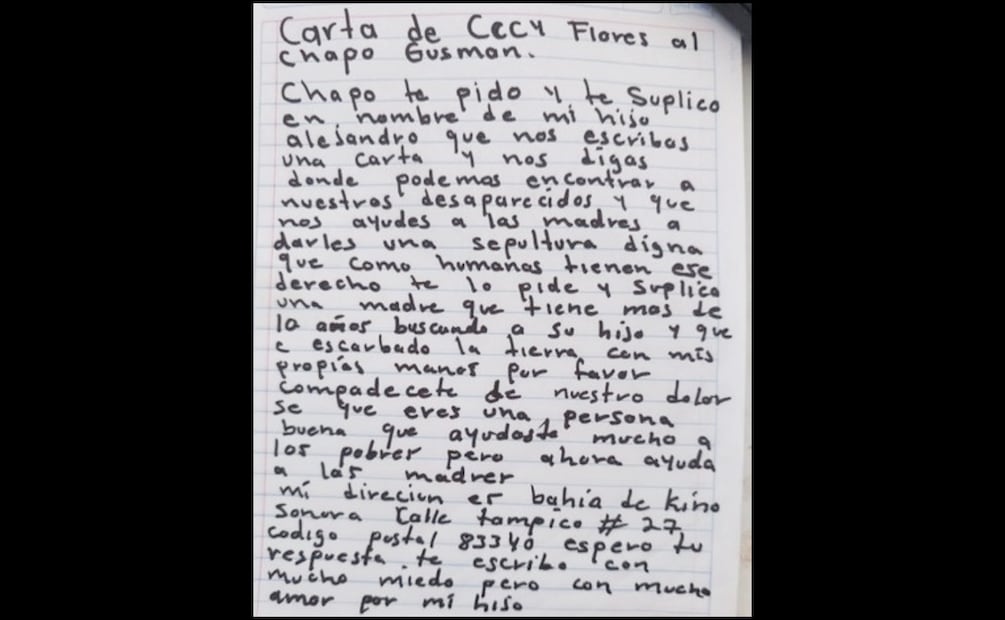 Carta de Cecy Flores al
chapo Gusman.
Chapo te pido y te Suplico
en nombre de mi hijo
alejandro que nos escribas
una carta y nos digas
donde podemos encontrar a
nuestros desaparecidos y que
nos ayudes a las madres a
darles una sepultura digna
que como humanos tienen ese
derecho te lo pide y suplica
una madre que tiene mas de
10 años buscando a su hijo y que
e escarbado la tierra con mis
propias manos por favor
compadecete de nuestro dolor
se que eres una persona
buena que ayudaste mucho a
los pobrer pero ahora ayuda
a las madrer
mi direcion er bahia de kino
Sonora Calle tampico # 27
codigo postal 83340 espero tu
respuesta te escribo con
mucho miedo pero con mucho
amor por mi hijo